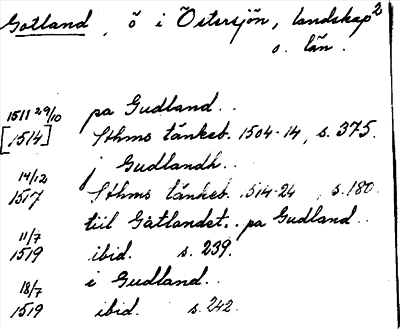 Gotland, ö i Östersjön, landskap 2
o. län.
1511 29/10 pa Gudland..
[1514] Sthms tänkeb. 1504-14, s. 375.
j Gudlandh..
14/12 1517 Sthms tänkeb. 1514-24, s. 180.
tiil Gåtlandet.. pa Gudland..
11/7 1519 ibid. s. 239.
i Gudland..
18/7 1519 ibid. s. 242.